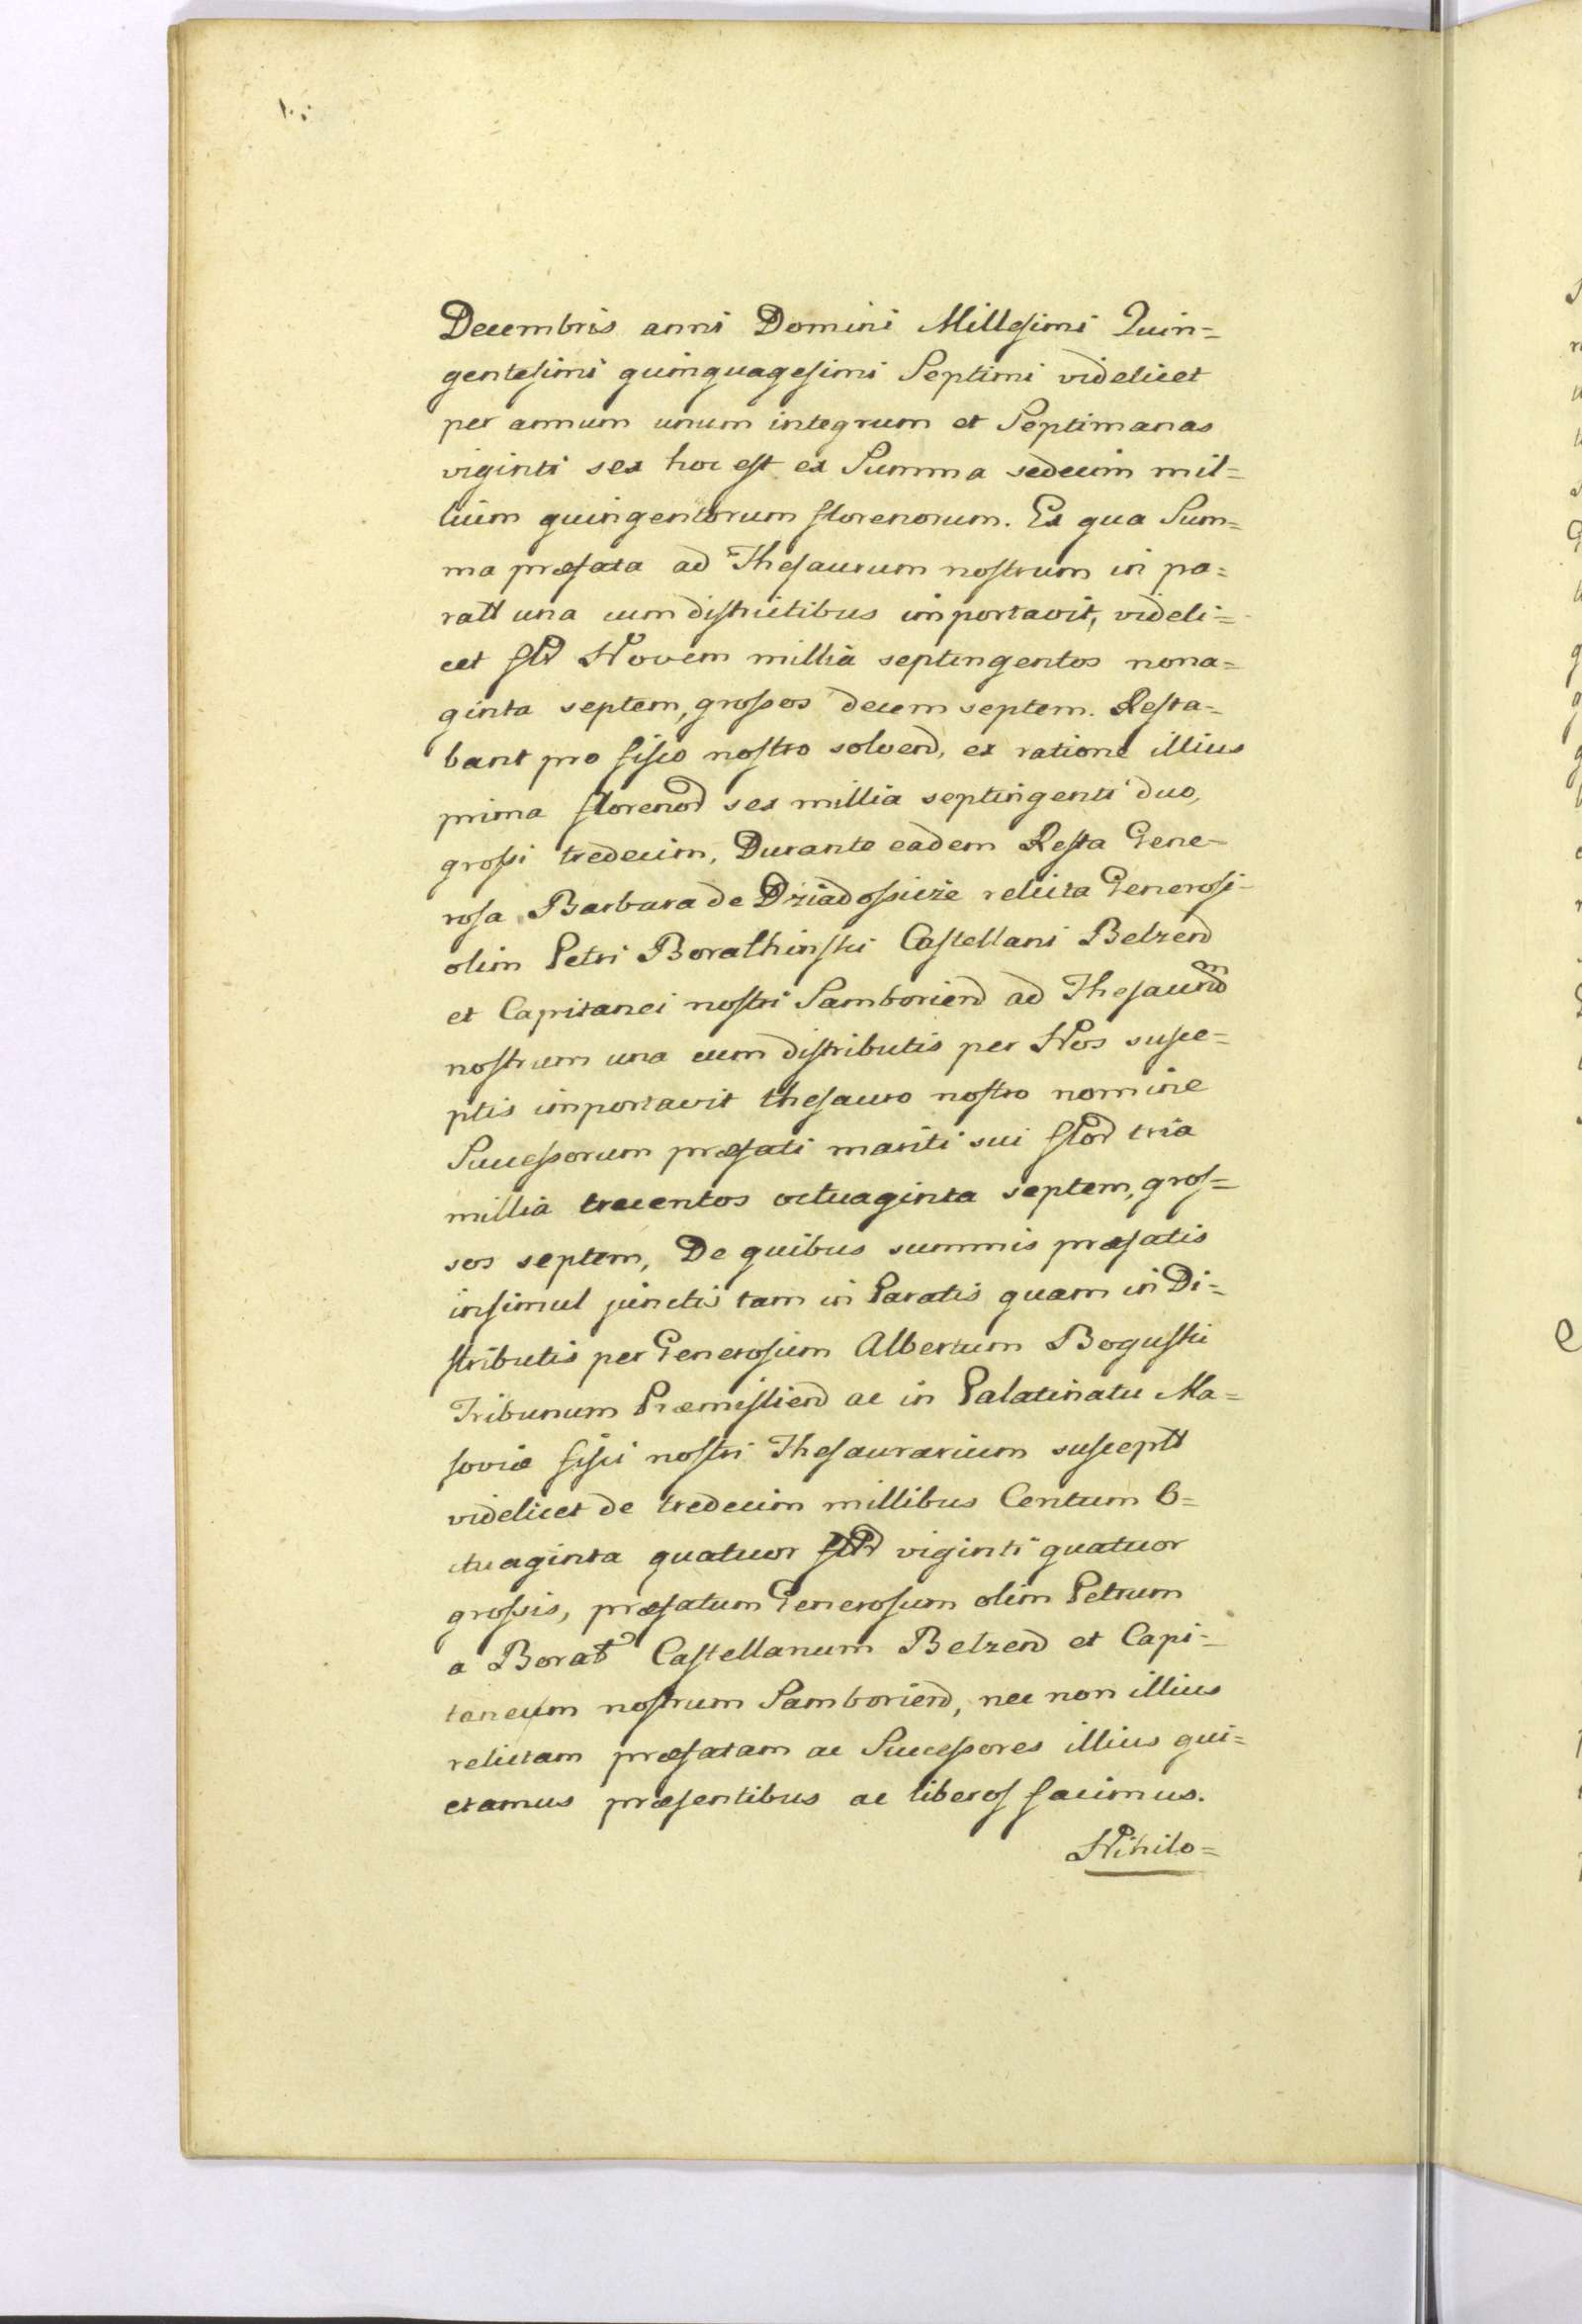 Decembris anni Domini Millesimi Quin=
gentesimi quinquagesimi Septimi videlicet
per annum unum integrum et Septimanas
viginti sex hoc est ex Summa sedecim mil=
lium quingentorum florenorum. Ex qua Sum=
ma præfata ad Thesaurum nostrum in pa=
ratt una cum districtibus importavit, videli=
cet fl Novem millia septingentos nona=
ginta septem, grossos decem septem. Resta=
bant pro fisco nostro solvend, ex ratione illius
prima florenod sex millia septingenti duo,
grossi tredecim, Durante eadem Resta Gene=
rosa Barbara de Dziadossicze relicta Generosi
olim Petri Borathinski Castellani Belzend
et Capitanei nostri Samboriend ad Thesaurum
nostrum una cum distributis per Nos susce=
ptis importavit thesauro nostro nomine
Successorum præfati mariti sui flod tria
millia trecentos octuaginta septem, gros=
sos septem, De quibus summis præfatis
insimul junctis tam in Paratis quam in Di=
stributis per Generosum Albertum Boguski
Tribunum Præmisliend ac in Palatinatu Ma=
soviæ fisci nostri Thesaurarium susceptt
videlicet de tredecim millibus Centum O=
ctuaginta quatuor viginti quatuor
grossis, præfatum Generosum olim Petrum
a Borat Castellanum Belzend et Capi=
taneum nostrum Samboriend, nec non illius
relictam præfatam ac Successores illius qui=
etamus præsentibus ac liberos facimus.
Nihilo=